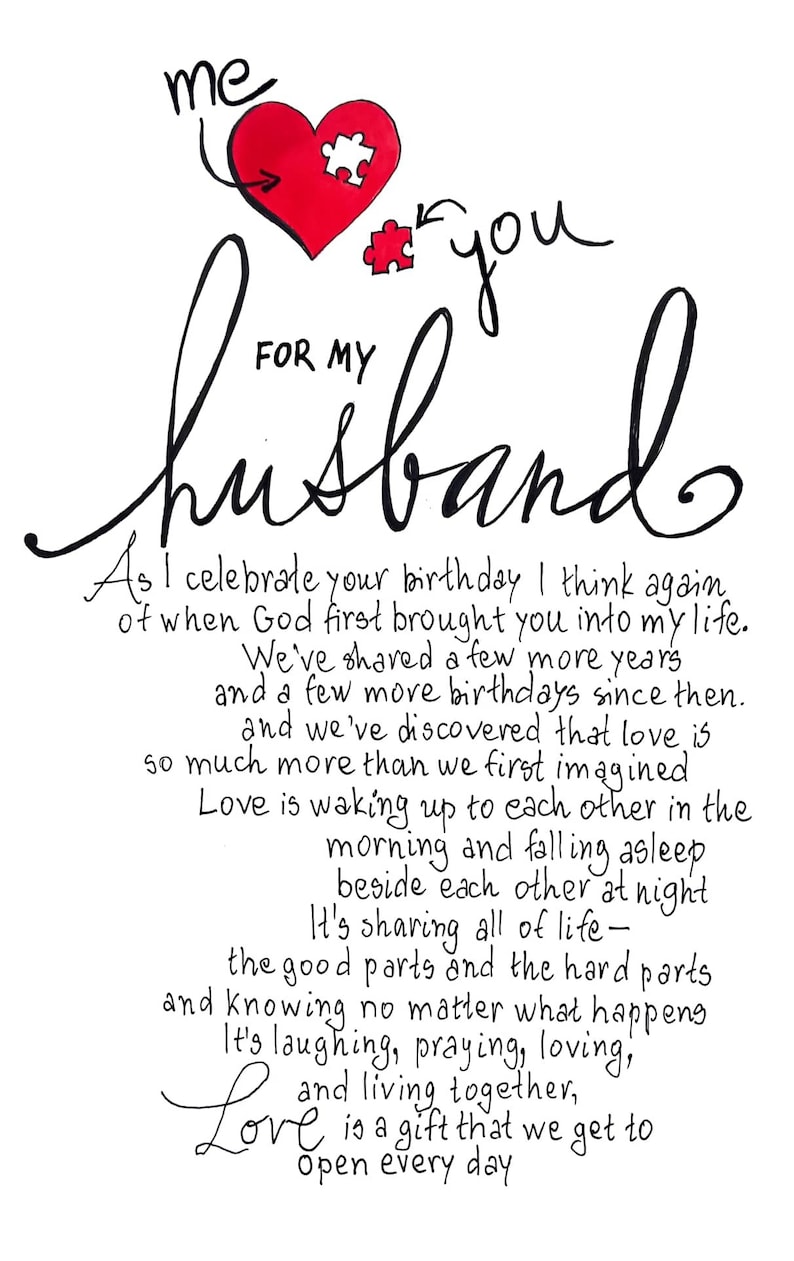 me
you
FOR MY
husband
As I celebrate your birthday I think again
of when God first brought you into my life.
We've shared a few more years
and a few more birthdays since then.
and we've discovered that love is
so much more than we first imagined
Love is waking up to each other in the
morning and falling asleep
beside each other at night
It's sharing all of life—
the good parts and the hard parts
and knowing no matter what happens
It's laughing, praying, loving,
and living together,
Love is a gift that we get to
open every day